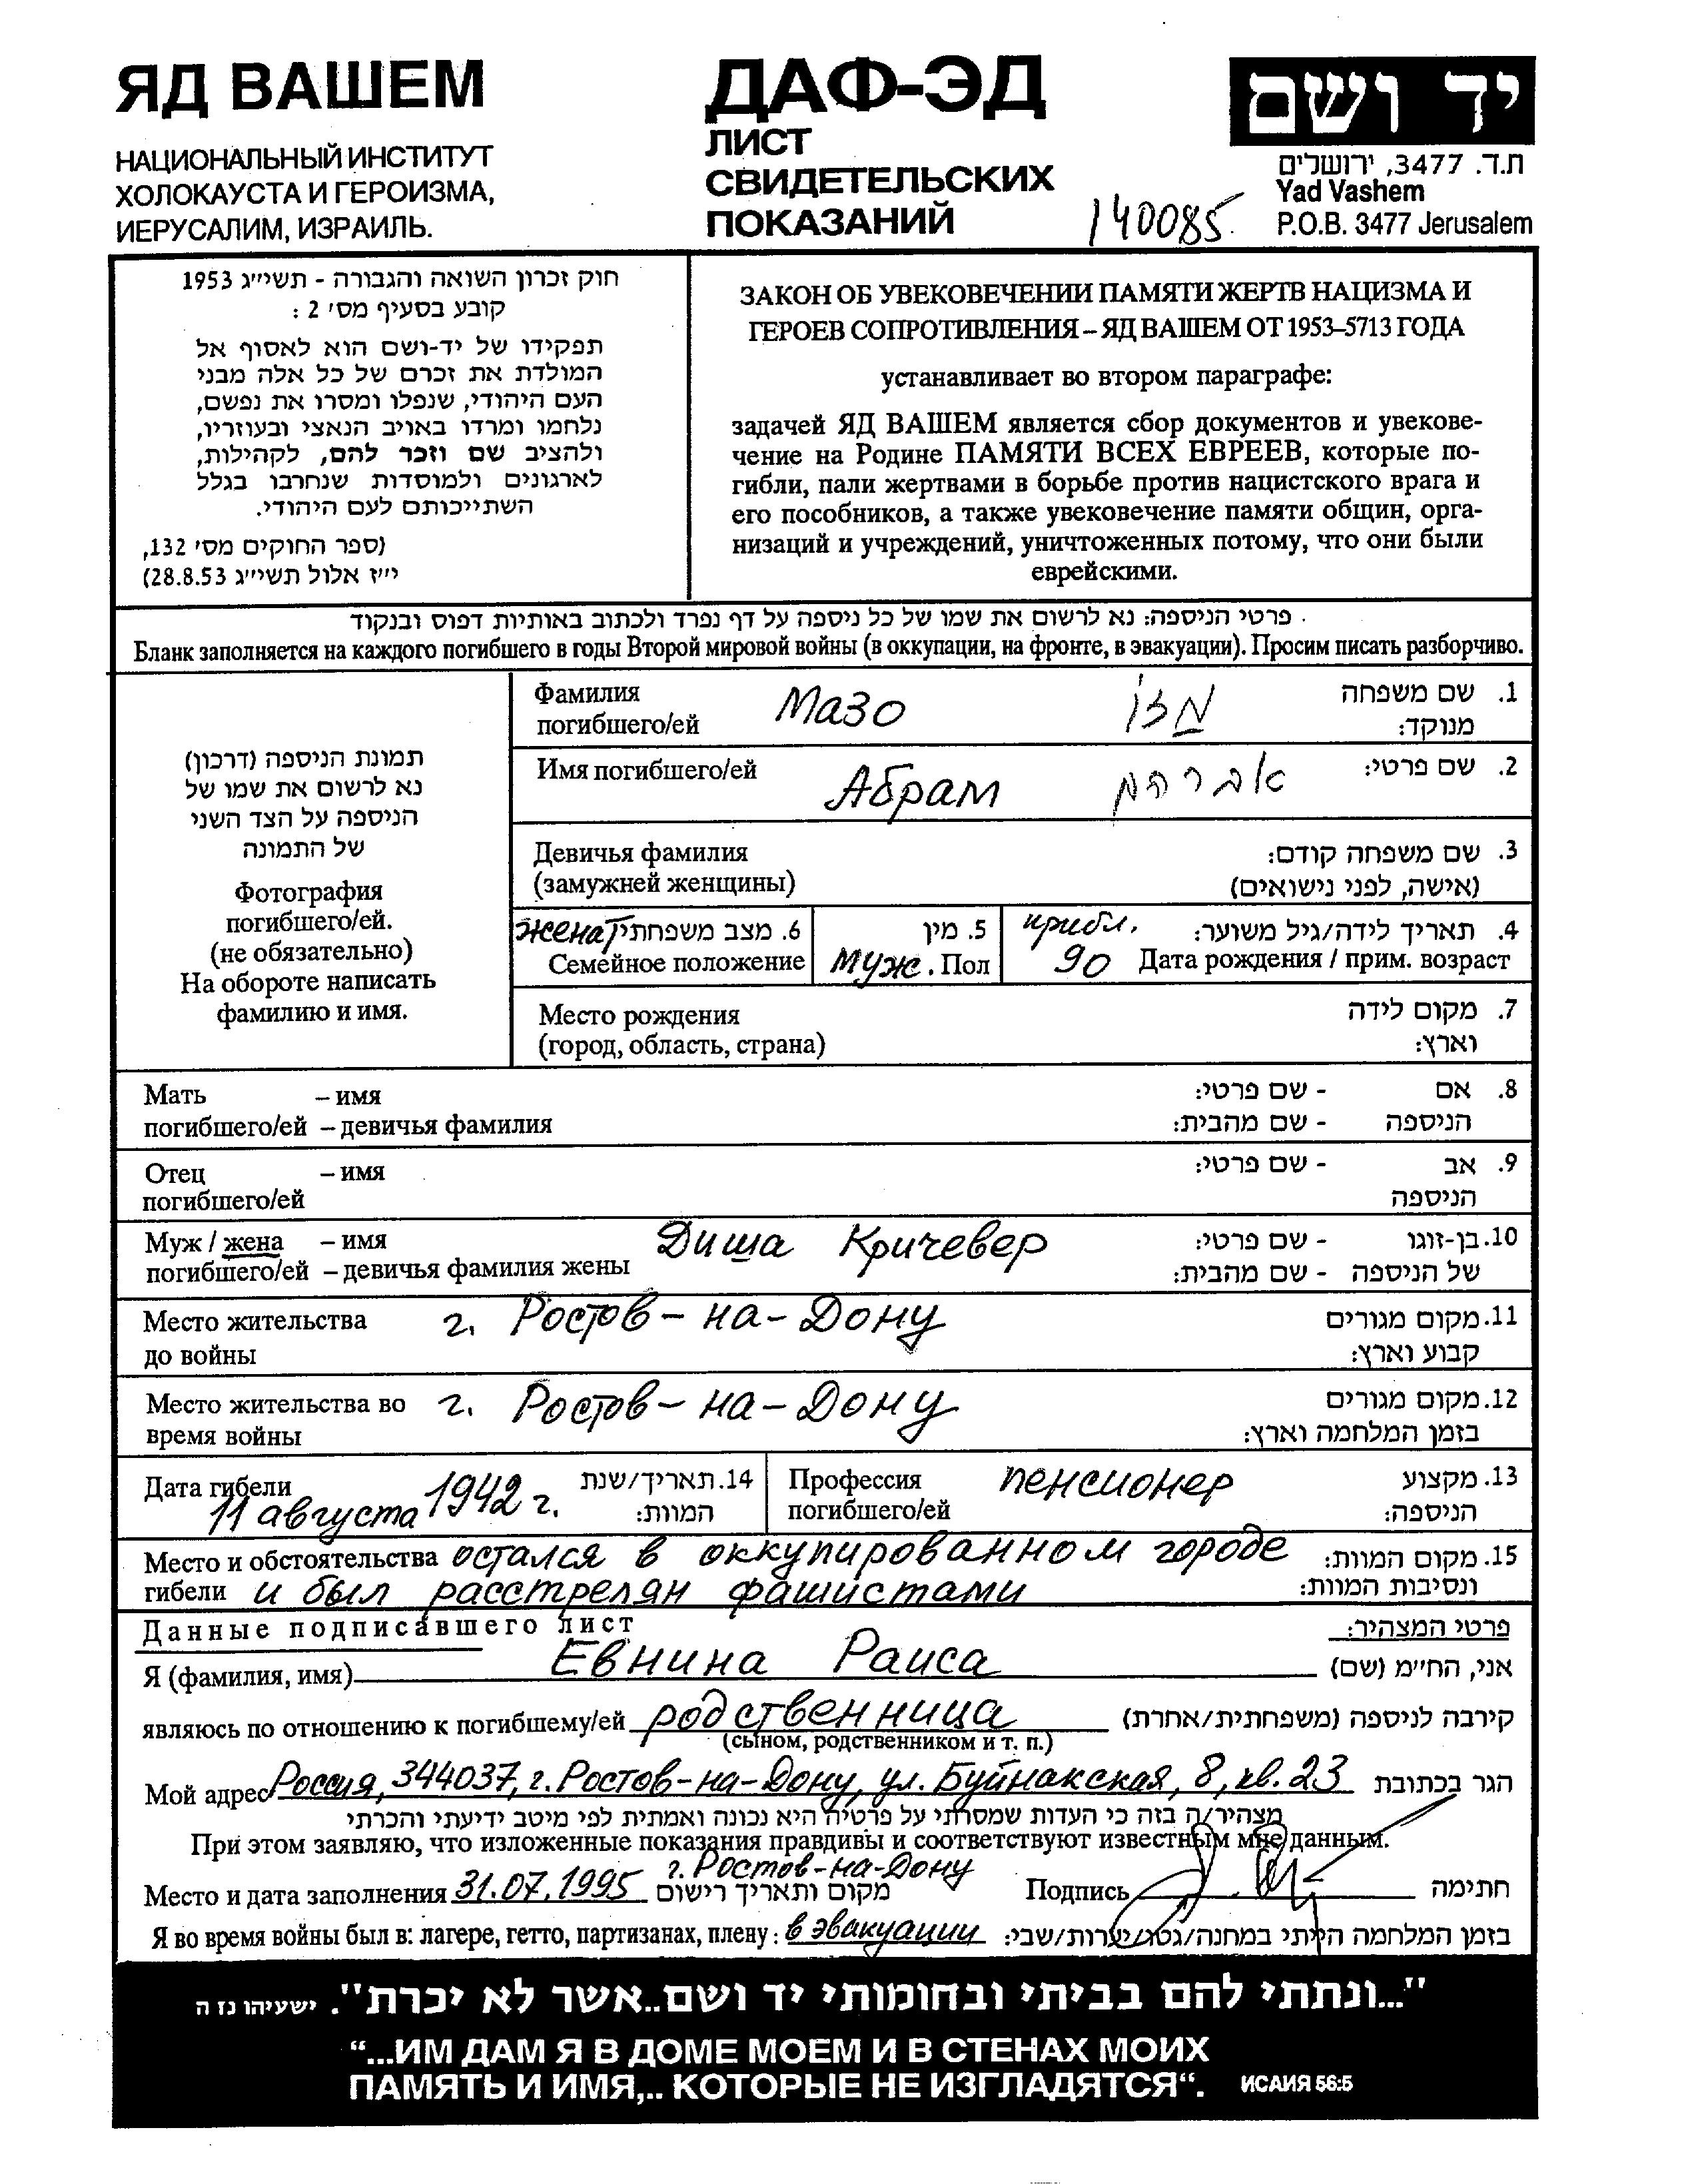 ЯД ВАШЕМ
НАЦИОНАЛЬНЫЙ ИНСТИТУТ
ХОЛОКАУСТА И ГЕРОИЗМА,
ИЕРУСАЛИМ, ИЗРАИЛЬ.
ДАФ-ЭД
ЛИСТ
СВИДЕТЕЛЬСКИХ
ПОКАЗАНИЙ
140085
יד ושם
ת.ד. 3477, ירושלים
Yad Vashem
P.O.B. 3477 Jerusalem
חוק זכרון השואה והגבורה - תשי״ג 1953
קובע בסעיף מס׳ 2 :
תפקידו של יד-ושם הוא לאסוף אל
המולדת את זכרם של כל אלה מבני
העם היהודי, שנפלו ומסרו את נפשם,
נלחמו ומרדו באויב הנאצי ובעוזריו,
ולהציב שם וזכר להם, לקהילות,
לארגונים ולמוסדות שנחרבו בגלל
השתייכותם לעם היהודי.
(ספר החוקים מס׳ 132,
י״ז אלול תשי״ג 28.8.53)
ЗАКОН ОБ УВЕКОВЕЧЕНИИ ПАМЯТИ ЖЕРТВ НАЦИЗМА И
ГЕРОЕВ СОПРОТИВЛЕНИЯ – ЯД ВАШЕМ ОТ 1953–5713 ГОДА
устанавливает во втором параграфе:
задачей ЯД ВАШЕМ является сбор документов и увекове-
чение на Родине ПАМЯТИ ВСЕХ ЕВРЕЕВ, которые по-
гибли, пали жертвами в борьбе против нацистского врага и
его пособников, а также увековечение памяти общин, орга-
низаций и учреждений, уничтоженных потому, что они были
еврейскими.
פרטי הניספה: נא לרשום את שמו של כל ניספה על דף נפרד ולכתוב באותיות דפוס ובנקוד
Бланк заполняется на каждого погибшего в годы Второй мировой войны (в оккупации, на фронте, в эвакуации). Просим писать разборчиво.
תמונת הניספה (דרכון)
נא לרשום את שמו של
הניספה על הצד השני
של התמונה
Фотография
погибшего/ей.
(не обязательно)
На обороте написать
фамилию и имя.
Фамилия Мазо מַזוֹ 1. שם משפחה
погибшего/ей מנוקד:
Имя погибшего/ей Абрам אברהם 2. שם פרטי:
Девичья фамилия 3. שם משפחה קודם:
(замужней женщины) (אישה, לפני נישואים)
женат 6. מצב משפחתי 5. מין прибл. 4. תאריך לידה/גיל משוער:
Семейное положение муж. Пол 90 Дата рождения / прим. возраст
Место рождения 7. מקום לידה
(город, область, страна) וארץ:
Мать – имя 8. אם - שם פרטי:
погибшего/ей – девичья фамилия הניספה - שם מהבית:
Отец – имя 9. אב - שם פרטי:
погибшего/ей הניספה
Муж / жена – имя Диша Кричевер 10. בן-זוגו - שם פרטי:
погибшего/ей – девичья фамилия жены של הניספה - שם מהבית:
Место жительства г. Ростов-на-Дону 11. מקום מגורים
до войны קבוע וארץ:
Место жительства во г. Ростов-на-Дону 12. מקום מגורים
время войны בזמן המלחמה וארץ:
Дата гибели 14. תאריך/שנת Профессия пенсионер 13. מקצוע
11 августа 1942 г. המוות: погибшего/ей הניספה:
Место и обстоятельства остался в оккупированном городе 15. מקום המוות:
гибели и был расстрелян фашистами ונסיבות המוות:
Данные подписавшего лист פרטי המצהיר:
Я (фамилия, имя) Евнина Раиса אני, החי״מ (שם)
являюсь по отношению к погибшему/ей родственница קירבה לניספה (משפחתית/אחרת)
(сыном, родственником и т. п.)
Мой адрес Россия, 344037, г. Ростов-на-Дону, ул. Буйнакская, 8, кв. 23 הגר בכתובת
מצהיר/ה בזה כי העדות שמסרתי על פרטיה היא נכונה ואמתית לפי מיטב ידיעתי והכרתי
При этом заявляю, что изложенные показания правдивы и соответствуют известным мне данным.
г. Ростов-на-Дону
Место и дата заполнения 31.07.1995 מקום ותאריך רישום Подпись חתימה
Я во время войны был в: лагере, гетто, партизанах, плену: в эвакуации בזמן המלחמה הייתי במחנה/גטו/יערות/שבי:
"...ונתתי להם בביתי ובחומותי יד ושם..אשר לא יכרת". ישעיהו נז ה
“...ИМ ДАМ Я В ДОМЕ МОЕМ И В СТЕНАХ МОИХ
ПАМЯТЬ И ИМЯ,.. КОТОРЫЕ НЕ ИЗГЛАДЯТСЯ“. ИСАИЯ 56:5